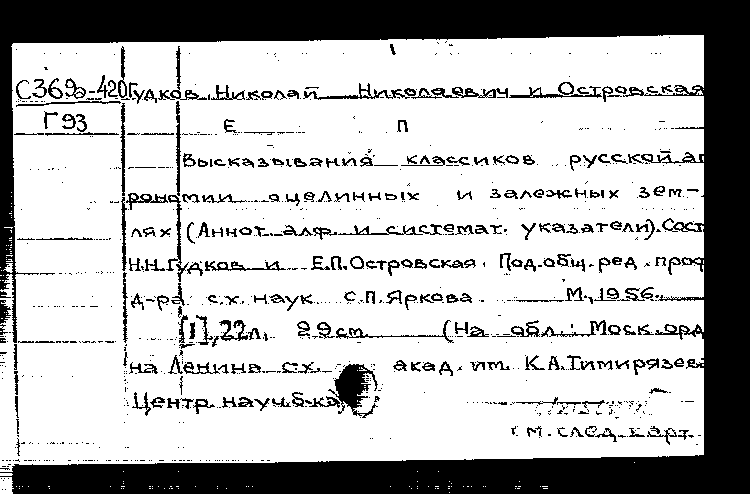 С369э-420 Гудков, Николай Николаевич и Островская
Г93 Е П
Высказывания классиков русской аг
рономии о целинных и залежных зем-
лях (Аннот. алф. и системат. указатели). Сост
Н.Н.Гудков и Е.П.Островская. Под общ. ред. проф
д-ра с.х. наук С.П.Яркова. М., 1956.
[1], 22л. 29см (На обл.: Моск. орд
на Ленина с.х. акад. им. К.А.Тимирязева
Центр. науч. б-ка)
см. след. карт.